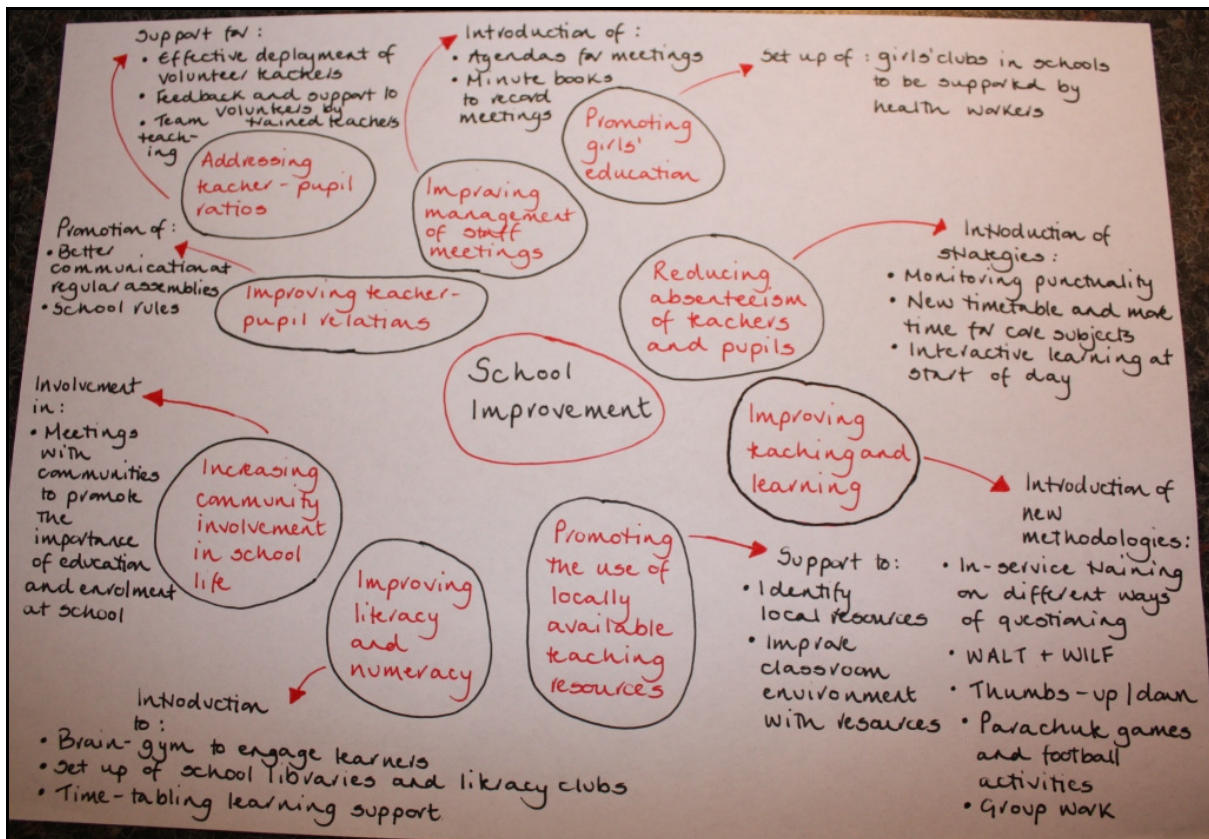 School
Improvement
Addressing
teacher-pupil
ratios
Support for:
• Effective deployment of
volunteer teachers
• Feedback and support to
volunteers by
trained teachers
• Team
teach-
ing
Improving
management
of staff
meetings
Introduction of:
• Agendas for meetings
• Minute books
to record
meetings
Promoting
girls'
education
Set up of: girls' clubs in schools
to be supported by
health workers
Reducing
absenteeism
of teachers
and pupils
Introduction of
strategies:
• Monitoring punctuality
• New timetable and more
time for core subjects
• Interactive learning at
start of day
Improving
teaching and
learning
Introduction of
new
methodologies:
• In-service training
on different ways
of questioning
• WALT + WILF
• Thumbs-up/down
• Parachute games
and football
activities
• Group work
Promoting
the use of
locally
available
teaching
resources
Support to:
• Identify
local resources
• Improve
classroom
environment
with resources
Improving
literacy
and
numeracy
Introduction
to:
• Brain-gym to engage learners
• Set up of school libraries and literacy clubs
• Time-tabling learning support
Increasing
community
involvement
in school
life
Involvement
in:
• Meetings
with
communities
to promote
the
importance
of education
and enrolment
at school
Improving teacher-
pupil relations
Promotion of:
• Better
communication at
regular assemblies
• School rules